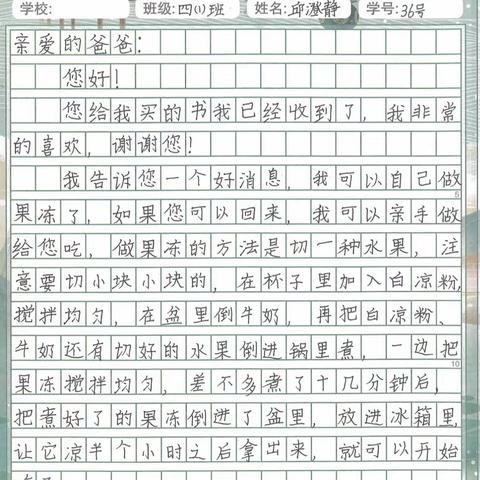 学校: 班级:四(1)班 姓名:邱澄静 学号:36号
亲爱的爸爸:
您好!
您给我买的书我已经收到了,我非常
的喜欢,谢谢您!
我告诉您一个好消息,我可以自己做
果冻了,如果您可以回来,我可以亲手做
给您吃,做果冻的方法是切一种水果,注
意要切小块小块的,在杯子里加入白凉粉,
搅拌均匀,在盆里倒牛奶,再把白凉粉、
牛奶还有切好的水果倒进锅里煮,一边把
果冻搅拌均匀,差不多煮了十几分钟后,
把煮好了的果冻倒进了盆里,放进冰箱里,
让它凉半个小时之后拿出来,就可以开始